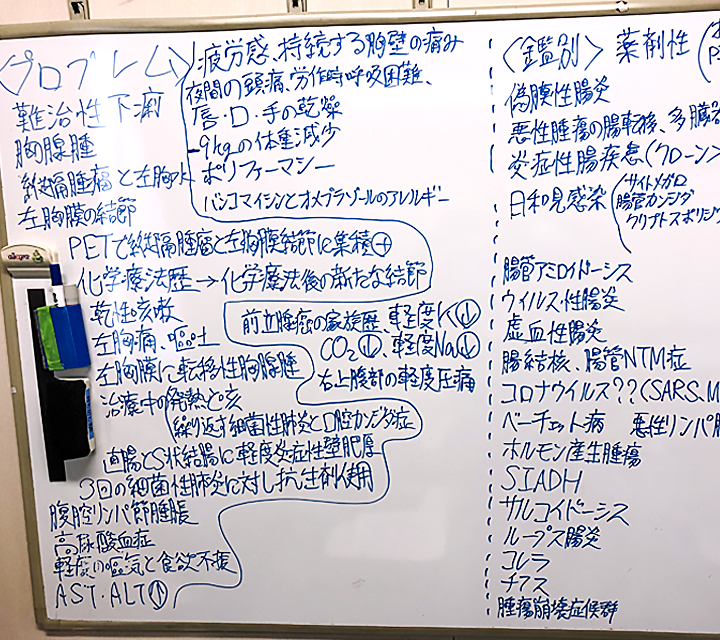 〈プロブレム〉
難治性下痢
胸腺腫
縦隔腫瘤と左胸水
左胸膜の結節
PETで縦隔腫瘤と左胸膜結節に集積+
化学療法歴→化学療法後の新たな結節
乾性咳嗽
左胸痛、嘔吐
左胸膜に転移性胸腺腫
治療中の発熱と咳
繰り返す細菌性肺炎と口腔カンジダ症
直腸とS状結腸に軽度炎症性壁肥厚
3回の細菌性肺炎に対し抗生剤使用
腹腔リンパ節腫脹
高尿酸血症
軽度の嘔気と食欲不振
AST・ALT↑
疲労感、持続する胸壁の痛み
夜間の頭痛、労作時呼吸困難、
唇・口・手の乾燥
-9kgの体重減少
ポリファーマシー
バンコマイシンとオメプラゾールのアレルギー
前立腺癌の家族歴、軽度K↓
CO2↓、軽度Na↓
右上腹部の軽度圧痛
〈鑑別〉 薬剤性
偽膜性腸炎
悪性腫瘍の腸転移、多臓
炎症性腸疾患(クローン
日和見感染
サイトメガロ
腸管カンジダ
クリプトスポリジ
腸管アミロイドーシス
ウイルス性腸炎
虚血性腸炎
腸結核、腸管NTM症
コロナウイルス??(SARS.M
ベーチェット病 悪性リンパ腫
ホルモン産生腫瘍
SIADH
サルコイドーシス
ループス腸炎
コレラ
チフス
腫瘍崩壊症候群